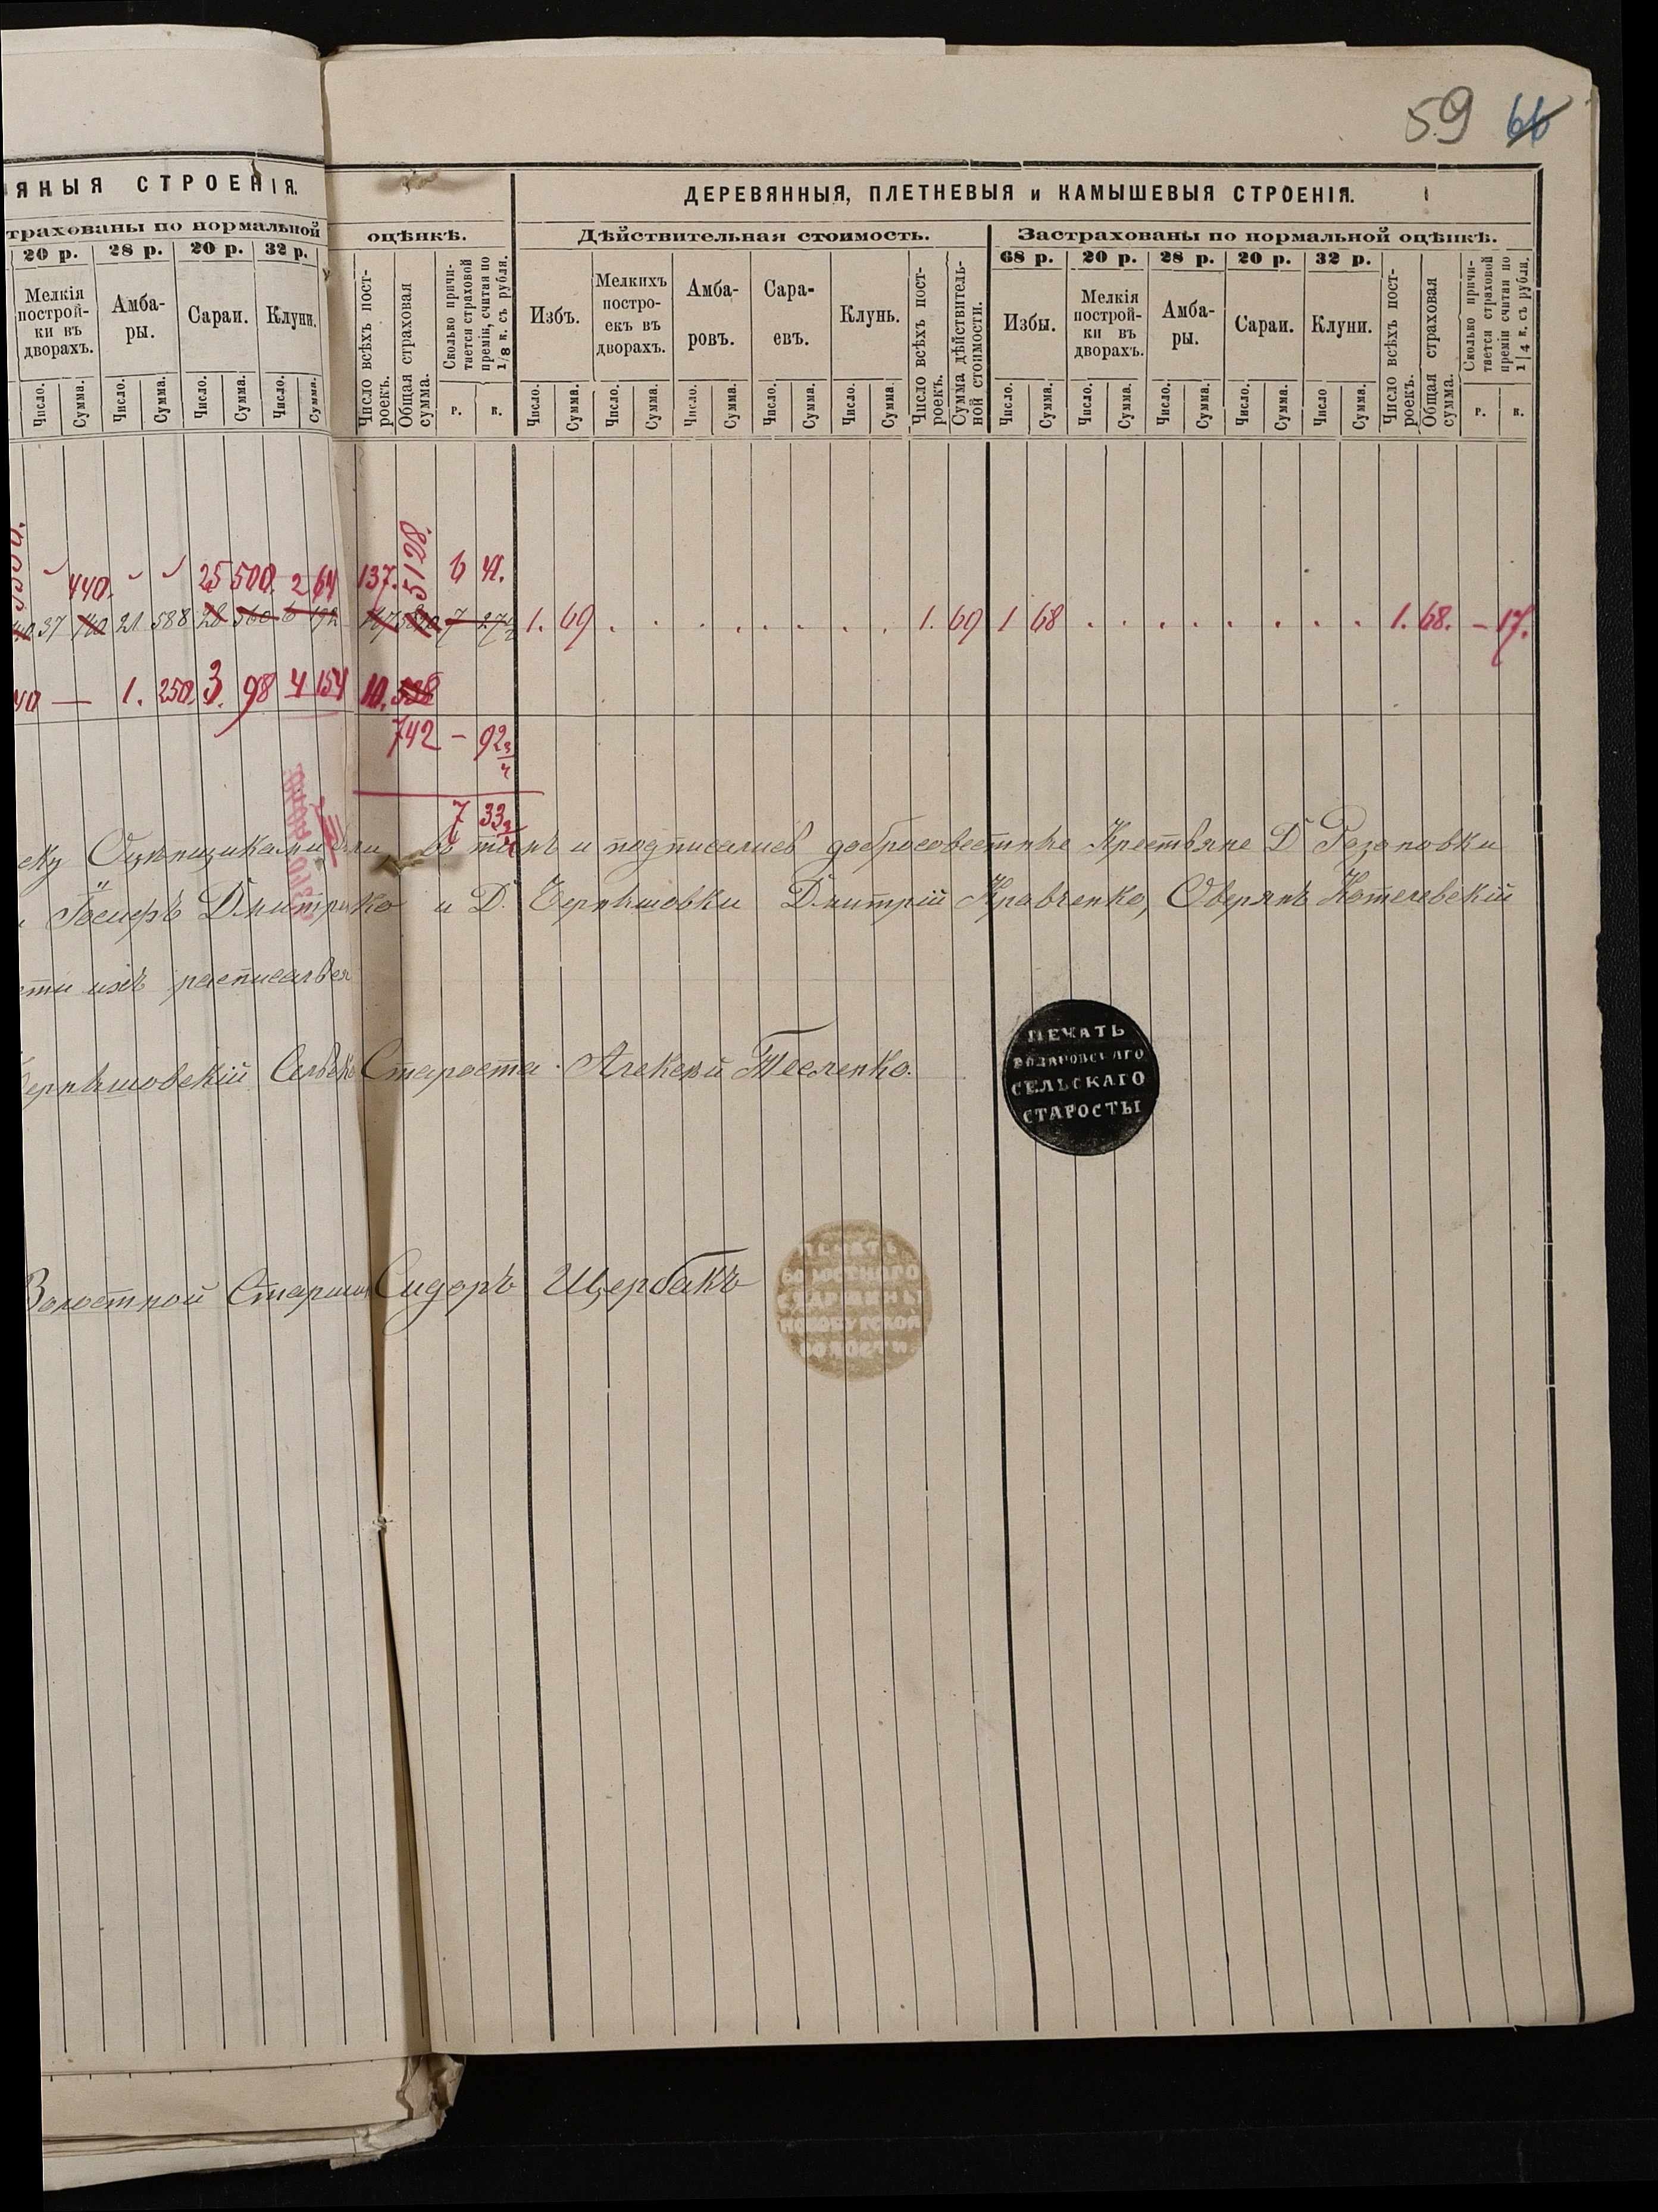 59 66
ЯНЫЯ СТРОЕНІЯ.
ДЕРЕВЯННЫЯ, ПЛЕТНЕВЫЯ и КАМЫШЕВЫЯ СТРОЕНІЯ.
трахованы по нормальной оцѣнкѣ.
Дѣйствительная стоимость.
Застрахованы по нормальной оцѣнкѣ.
20 р. 28 р. 20 р. 32 р.
68 р. 20 р. 28 р. 20 р. 32 р.
Мелкія построй-ки въ дворахъ.
Амба-ры.
Сараи.
Клуни.
Число всѣхъ пост-роекъ.
Общая страховая сумма.
Сколько причи-тается страховой преміи, считая по 1/8 к. съ рубля.
Избъ.
Мелкихъ постро-екъ въ дворахъ.
Амба-ровъ.
Сара-евъ.
Клунь.
Число всѣхъ пост-роекъ.
Сумма дѣйствитель-ной стоимости.
Избы.
Мелкія построй-ки въ дворахъ.
Амба-ры.
Сараи.
Клуни.
Число всѣхъ пост-роекъ.
Общая страховая сумма.
Сколько причи-тается страховой преміи считая по 1/4 к. съ рубля.
Число. Сумма. Число. Сумма. Число. Сумма. Число. Сумма. р. к. Число. Сумма. Число. Сумма. Число. Сумма. Число. Сумма. Число. Сумма. Число. Сумма. Число. Сумма. Число. Сумма. Число. Сумма. Число Сумма. р. к.
440. 25 500. 2 64 137. 5128. 6 41.
37 740 21 588 28 560 6 192 1. 69 . . . . . . . . 1. 69 1 68 . . . . . . . . 1. 68. – 17.
40 — 1. 250. 3. 98 4 154 10. 538
742 – 92 3/4
7 33 3/4
Оцѣнщиками и подписались добросовестные Крестьяне Д. Розановки
Дмитренко и Д. Чернышовки Дмитрій Кравченко, Оверянъ Котелевскій
ихъ расписался
Чернышовскій Сельскі Староста Алексѣй Тесленко.
ПЕЧАТЬ
РОЗАНОВСКАГО
СЕЛЬСКАГО
СТАРОСТЫ
Волостной Старшин Сидоръ Щербакъ
ПЕЧАТЬ
ВОЛОСТНАГО
СТАРШИНЫ
НОВОБУГСКОЙ
ВОЛОСТИ